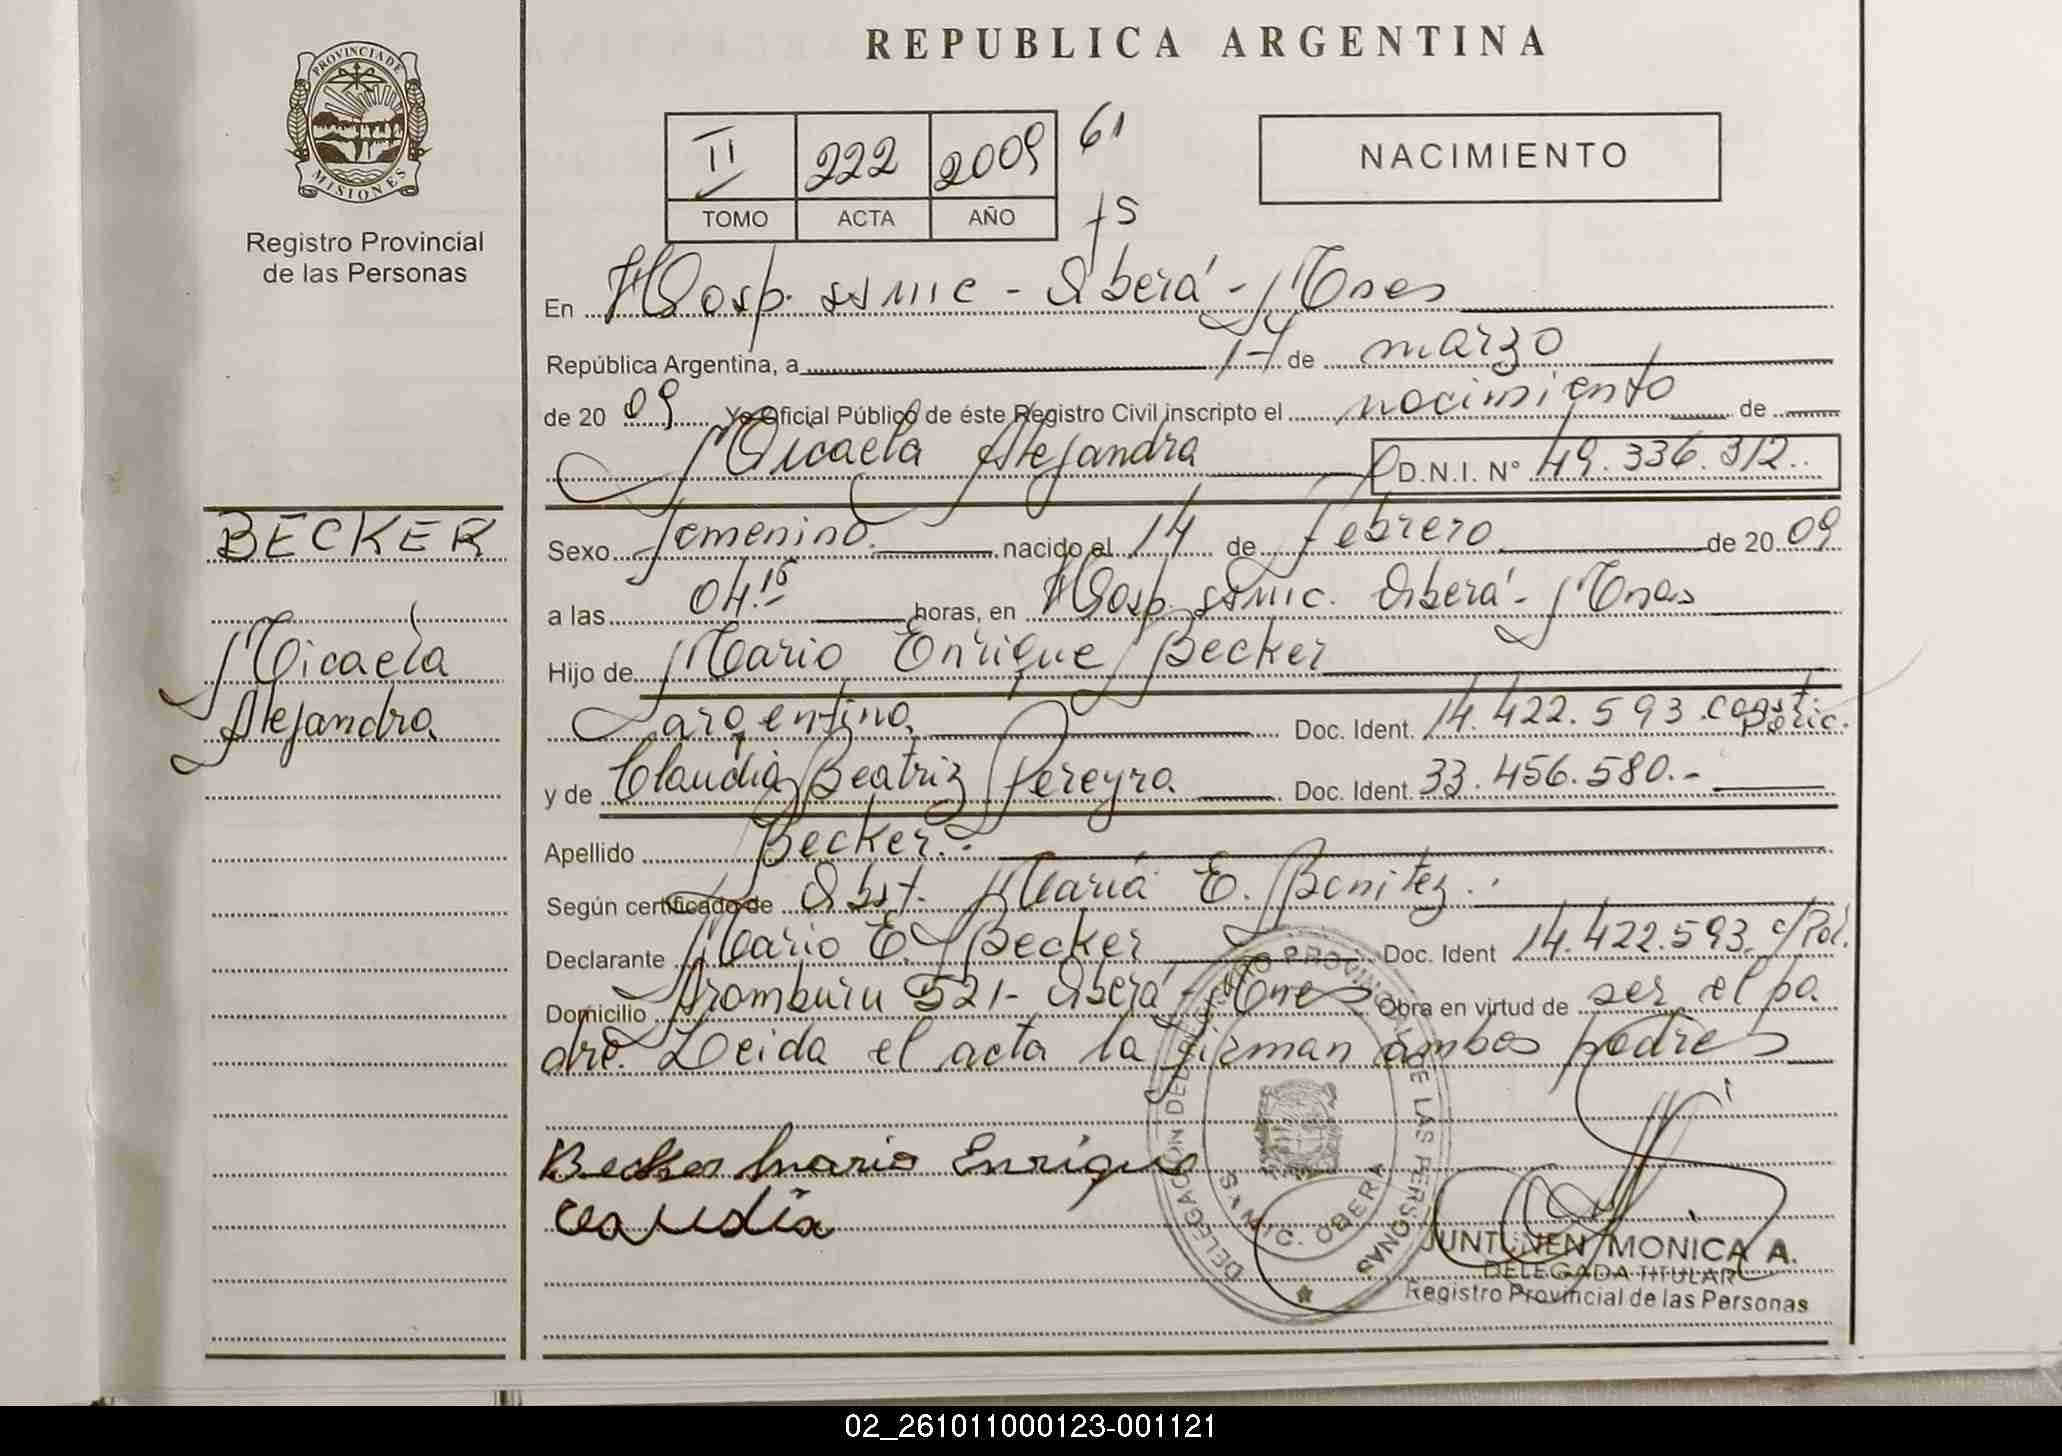 REPUBLICA ARGENTINA
PROVINCIA DE
MISIONES
Registro Provincial
de las Personas
II 222 2009 61
TOMO ACTA AÑO
NACIMIENTO
En Hosp. SAMIC - Oberá - Mnes
República Argentina, a 17 de marzo
de 20 09 Yo Oficial Público de éste Registro Civil inscripto el nacimiento de
Micaela Alejandra D.N.I. N° 49.336.312.
BECKER
Micaela
Alejandra
Sexo femenino. nacido el 14 de febrero de 20 09
a las 04.15 horas, en Hosp. SAMIC. Oberá - Mnes
Hijo de Mario Enrique Becker
argentino Doc. Ident. 14.422.593. const. Polic.
y de Claudia Beatriz Pereyra Doc. Ident. 33.456.580.-
Apellido Becker.
Según certificado de Obst. María E. Benitez.
Declarante Mario E. Becker Doc. Ident 14.422.593. c/Pol.
Domicilio Aramburu 521- Oberá - Mnes Obra en virtud de ser el pa
dre. Leida el acta la firman ambos padres
Becker Mario Enrique
Claudia
DELEGACION DEL REGISTRO PROVINCIAL DE LAS PERSONAS
S.A.M.I.C. OBERA
JUNTUNEN MONICA A.
DELEGADA TITULAR
Registro Provincial de las Personas
02_261011000123-001121